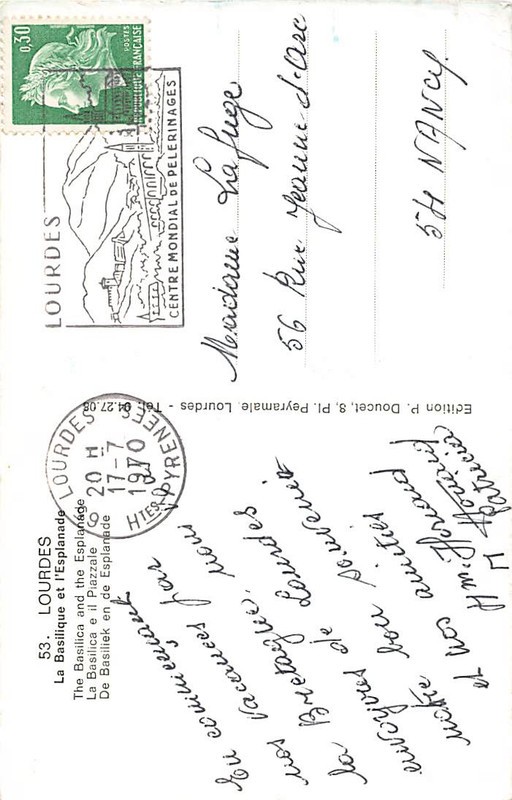 53. LOURDES
La Basilique et l'Esplanade
The Basilica and the Esplanade
La Basilica e il Piazzale
De Basiliek en de Esplanade
En commençant par
nos vacances, nous
la Bretagne, Lourdes
envoyons de souvenir
notre bon amitiés
et nos
Patricia
Edition P. Doucet, 8, Pl. Peyramale. Lourdes - Tél. 94.27.08
LOURDES
20 H
17-7
1970
Htes PYRENEES
LOURDES
CENTRE MONDIAL DE PELERINAGES
0,30
POSTES
REPUBLIQUE FRANÇAISE
Madame Lafuge
56 Rue Jeanne d'Arc
54 NANCY